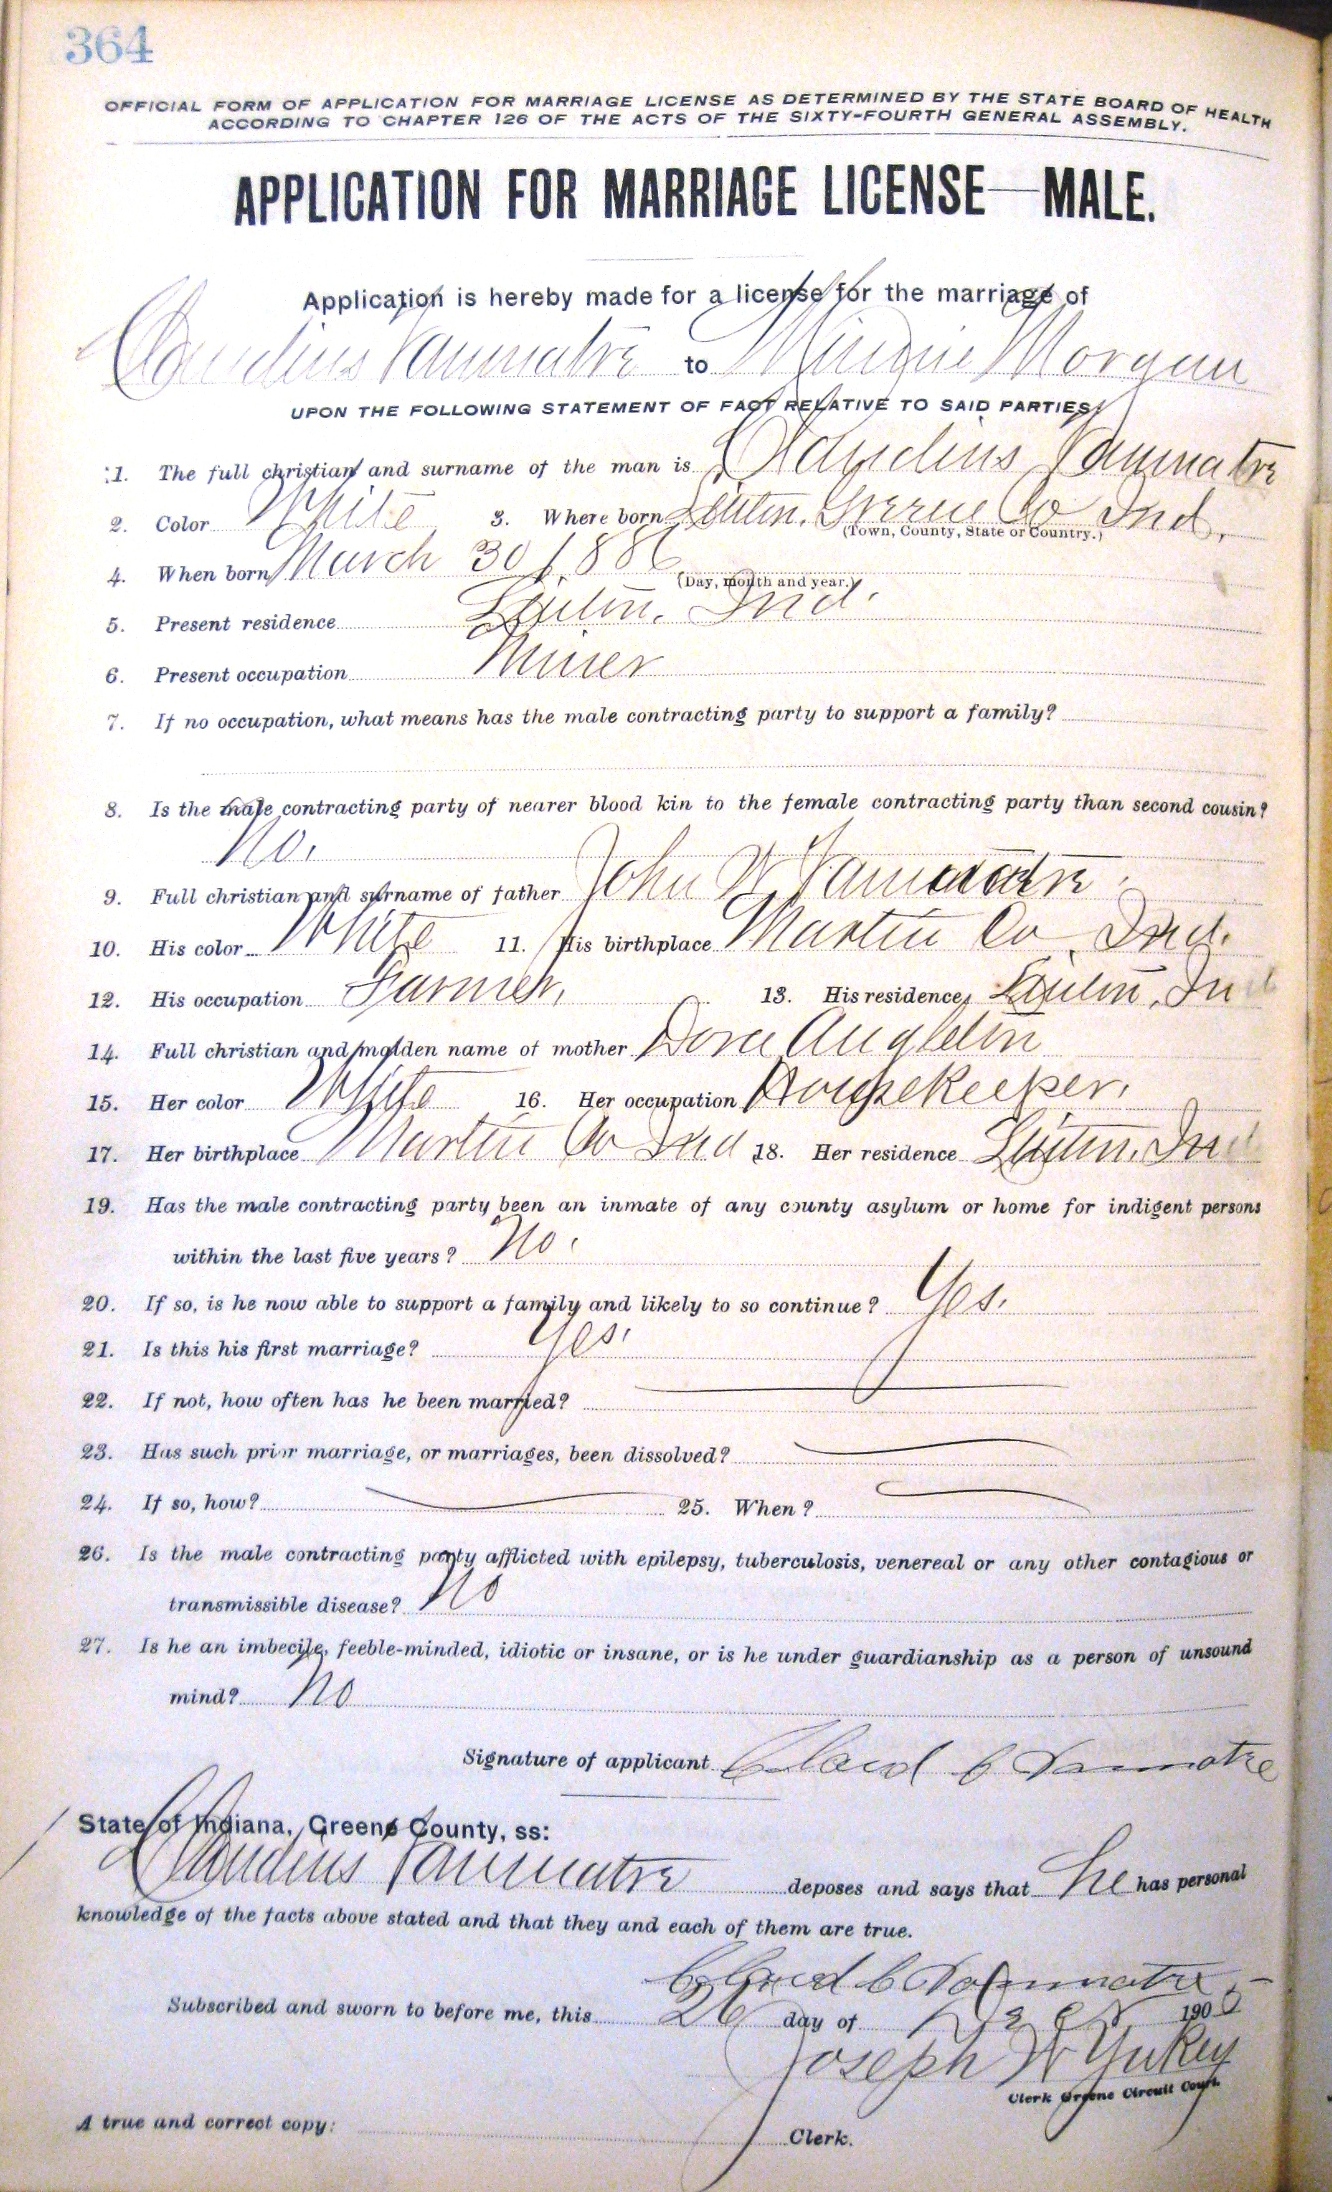 364
OFFICIAL FORM OF APPLICATION FOR MARRIAGE LICENSE AS DETERMINED BY THE STATE BOARD OF HEALTH
ACCORDING TO CHAPTER 126 OF THE ACTS OF THE SIXTY-FOURTH GENERAL ASSEMBLY.
APPLICATION FOR MARRIAGE LICENSE—MALE.
Application is hereby made for a license for the marriage of
Claudius Vanmatre to Minnie Morgan
UPON THE FOLLOWING STATEMENT OF FACT RELATIVE TO SAID PARTIES:
1. The full christian and surname of the man is Claudius Vanmatre
2. Color White 3. Where born Linton, Greene Co Ind.
(Town, County, State or Country.)
4. When born March 30 1886
(Day, month and year.)
5. Present residence Linton, Ind.
6. Present occupation Miner
7. If no occupation, what means has the male contracting party to support a family?
8. Is the male contracting party of nearer blood kin to the female contracting party than second cousin?
No.
9. Full christian and surname of father John W Vanmatre
10. His color White 11. His birthplace Martin Co. Ind.
12. His occupation Farmer, 13. His residence, Linton, Ind
14. Full christian and maiden name of mother Dora Angleton
15. Her color White 16. Her occupation Housekeeper.
17. Her birthplace Martin Co Ind 18. Her residence Linton, Ind
19. Has the male contracting party been an inmate of any county asylum or home for indigent persons
within the last five years? No.
20. If so, is he now able to support a family and likely to so continue? Yes.
21. Is this his first marriage? Yes.
22. If not, how often has he been married?
23. Has such prior marriage, or marriages, been dissolved?
24. If so, how? 25. When?
26. Is the male contracting party afflicted with epilepsy, tuberculosis, venereal or any other contagious or
transmissible disease? No
27. Is he an imbecile, feeble-minded, idiotic or insane, or is he under guardianship as a person of unsound
mind? No
Signature of applicant Claud C Vanmatre
State of Indiana, Greene County, ss:
Claudius Vanmatre deposes and says that he has personal
knowledge of the facts above stated and that they and each of them are true.
Claud C Vanmatre
Subscribed and sworn to before me, this 26 day of Dec 190
Joseph W Yakey
Clerk Greene Circuit Court.
A true and correct copy: Clerk.